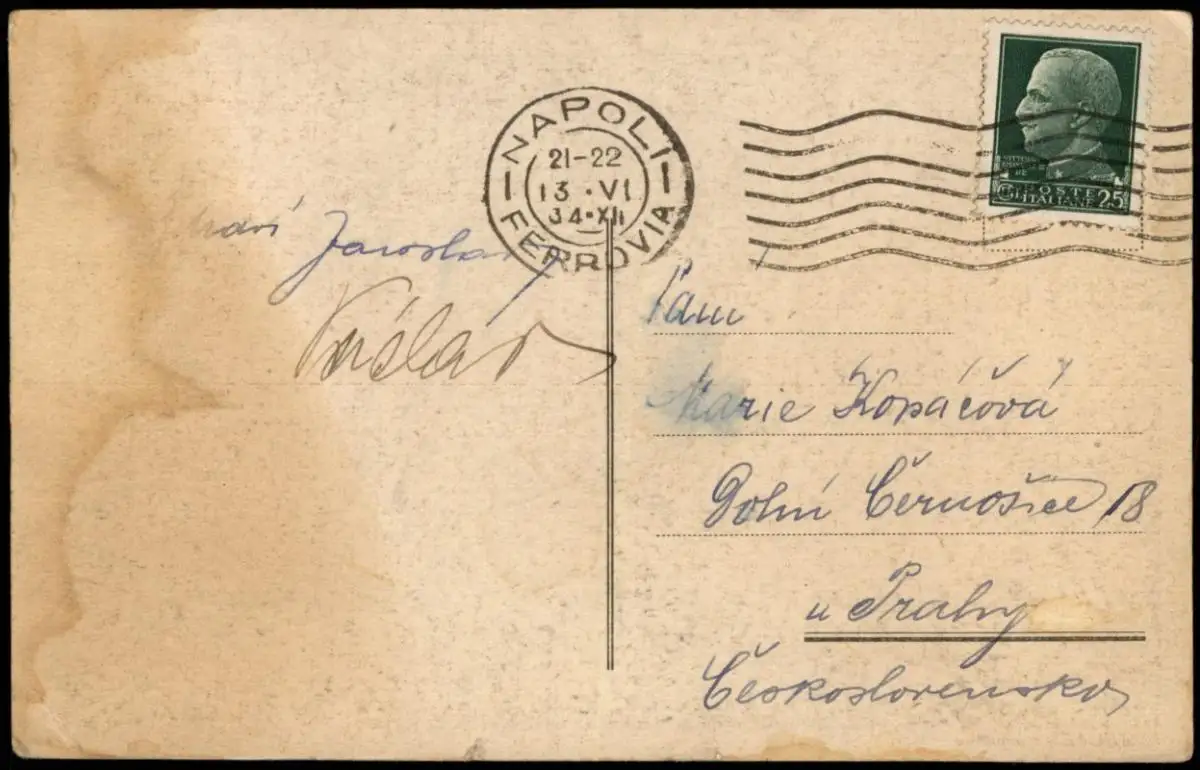 NAPOLI
21-22
13·VI
34·XII
FERROVIA
POSTE 25
ITALIANE
Jaroslav
Paní
Marie Kopáčová
Dolní Černošice 18
u Prahy
Československo